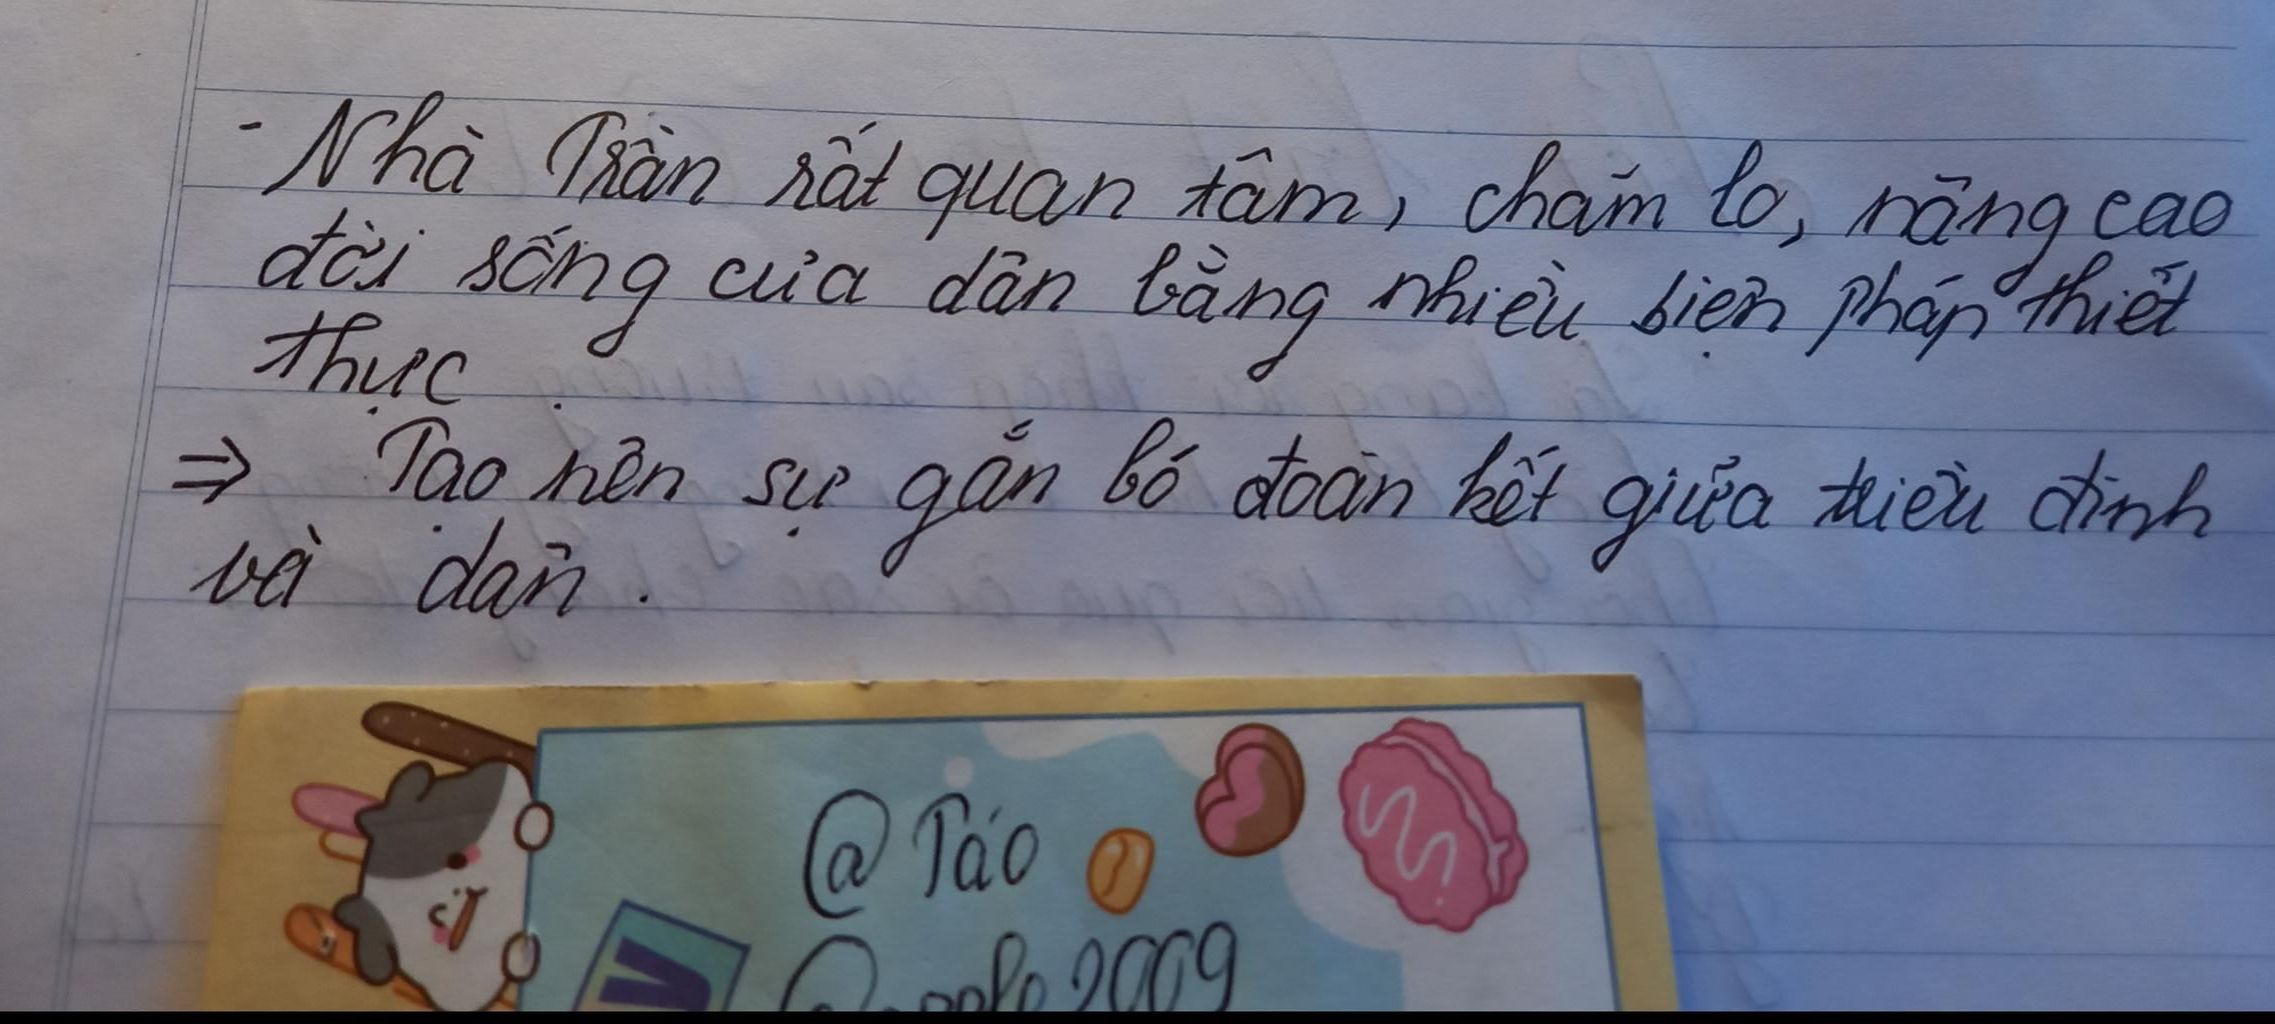 - Nhà Trần rất quan tâm, chăm lo, nâng cao
đời sống của dân bằng nhiều biện pháp thiết
thực.
⇒ Tạo nên sự gắn bó đoàn kết giữa triều đình
và dân.
@ Táo
2009